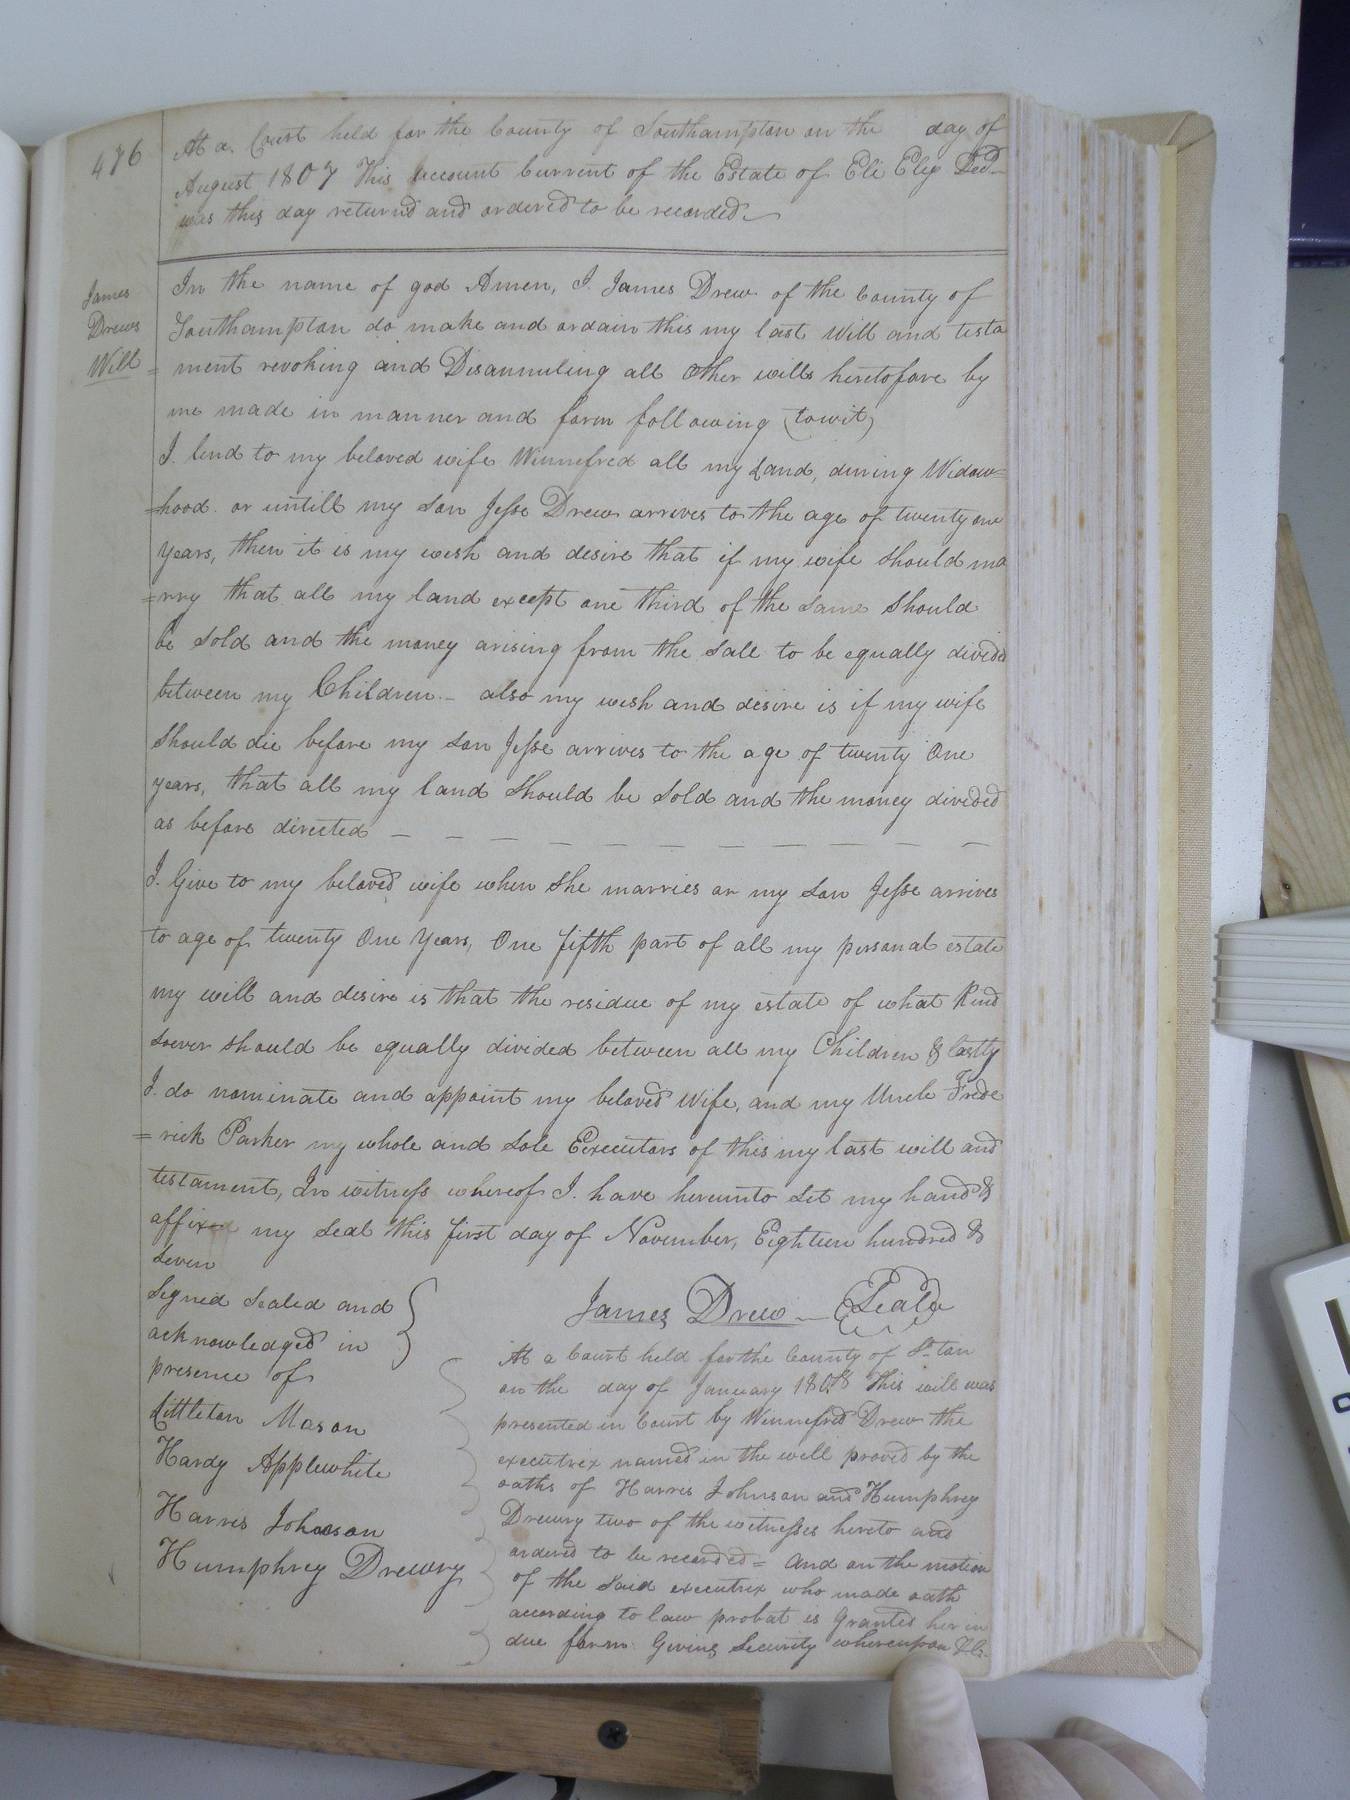 476
At a Court held for the County of Southampton on the day of
August 1807 This account Current of the Estate of Eli Eley Decd
was this day returnd and ordered to be recorded
James
Drews
Will
In the name of god Amen, I James Drew of the County of
Southampton do make and ordain this my last Will and testa
= ment revoking and Disannuling all Other wills heretofore by
me made in manner and form following (towit)
I lend to my beloved wife Winnefred all my Land, during Widow=
=hood or untill my son Jesse Drew arrives to the age of twenty one
Years, then it is my wish and desire that if my wife should ma
=rry that all my land except one third of the same should
be sold and the money arising from the sale to be equally divided
between my Children - also my wish and desire is if my wife
should die before my son Jesse arrives to the age of twenty One
years, that all my land should be sold and the money divided
as before directed — — — — — — — — — — —
I Give to my beloved wife when she marries or my son Jesse arrives
to age of twenty One Years, One fifth part of all my personal estate
my will and desire is that the residue of my estate of what Kind
soever should be equally divided between all my Children & lastly
I do nominate and appoint my beloved Wife, and my Uncle Frede
= rick Parker my whole and sole Executors of this my last will and
testament, In witness whereof I have hereunto set my hand &
affixed my seal this first day of November, Eighteen hundred &
seven
Signed Sealed and
acknowledged in
presence of
Littleton Mason
Hardy Applewhite
Harres Johnson
Humphrey Drewry
James Drew — Seal
At a Court held for the County of S°. ton
on the day of January 1808 This will was
presented in Court by Winnefred Drew the
executrix named in the will proved by the
oaths of Harres Johnson and Humphrey
Drewry two of the witnesses hereto and
ordered to be recorded = And on the motion
of the said executrix who made oath
according to law probat is Granted her in
due form Giving Security whereupon &c.